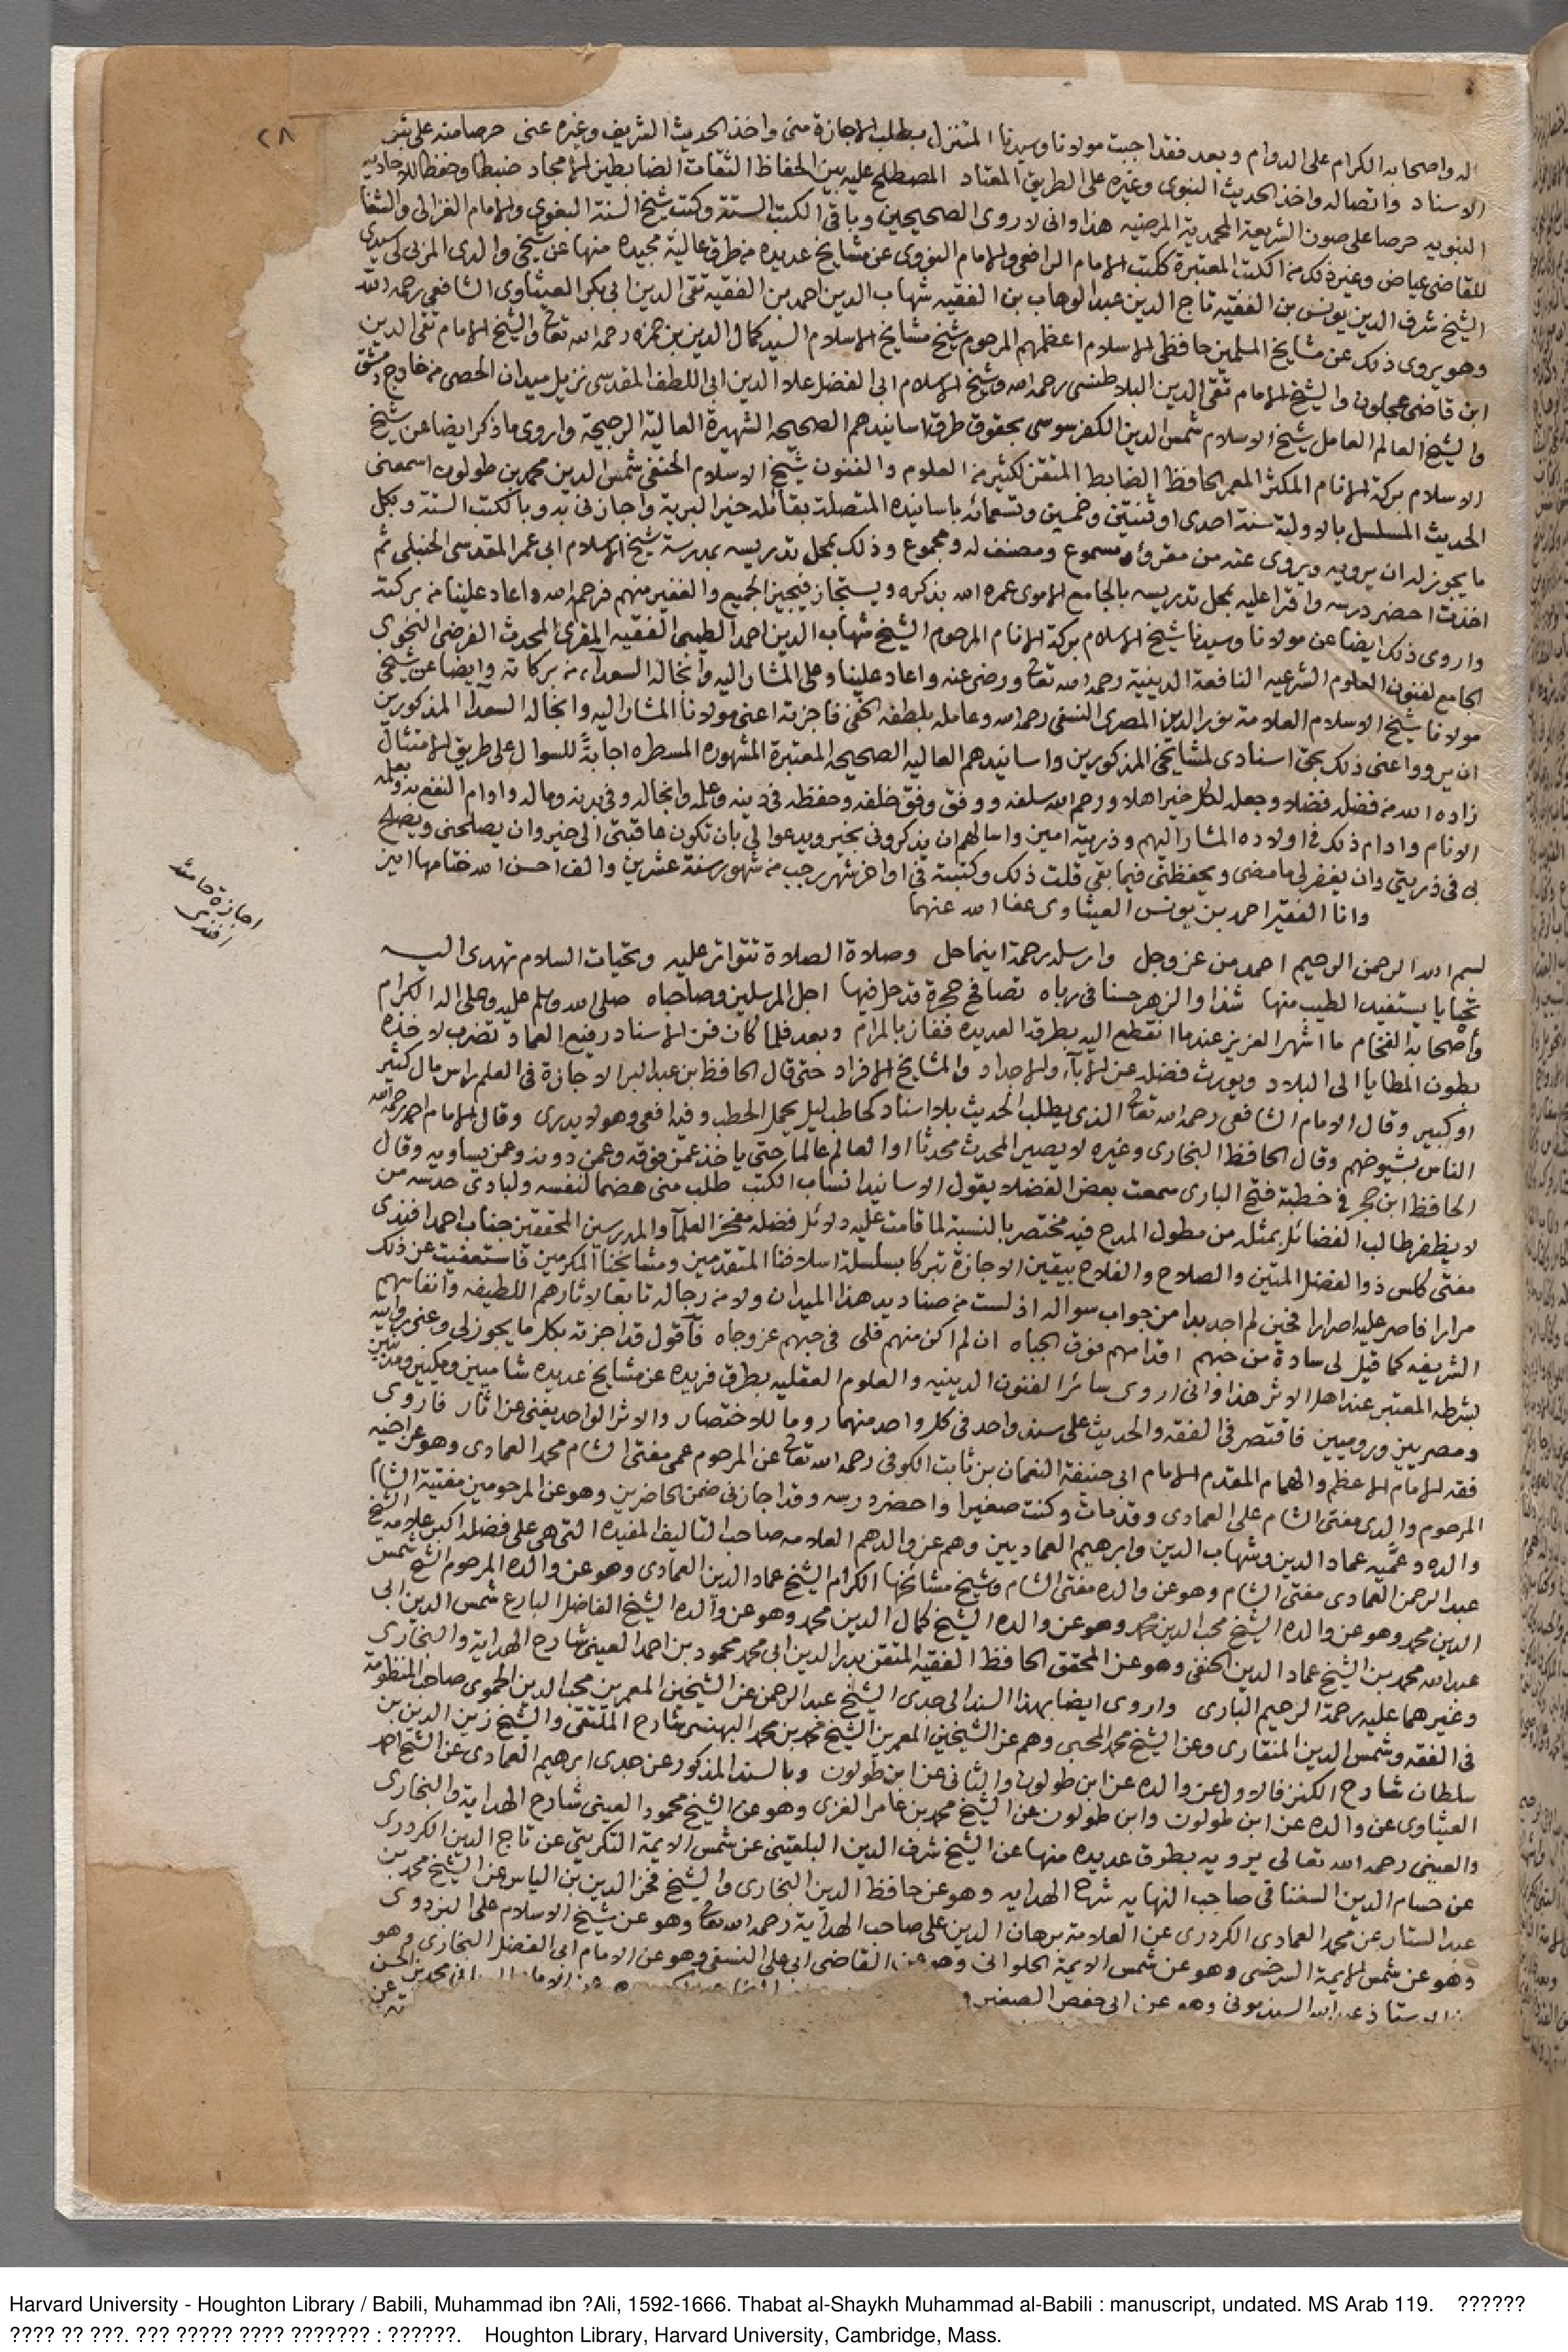 ٢٨
اله واصحابه الكرام على الدوام وبعد فقد اجبت مولانا وسيدنا المتنزل بطلب الاجازة منى واخذ الحديث الشريف وغيره عنى حرصا منه على
الاسناد واتصاله واخذ الحديث النبوى وغيره على الطريق المعتاد المصطلح عليه بين الحفاظ الثقات الضابطين الامجاد ضبطا وحفظا للاحاديث
النبويه حرصا على صون الشريعة المحمدية المرضيه هذا وانى لاروى الصحيحين وباقى الكتب الستة وكتب شيخ السنة البغوي والامام الغزالى والشفا
للقاضى عياض وغير ذلك من الكتب المعتبرة ككتب الامام الرافعى والامام النووى عن مشايخ عديده من طرق عالية مجيده منها عن شيخى والدى المربى لى سيدى
الشيخ شرف الدين يونس بن الفقيه تاج الدين عبد الوهاب بن الفقيه شهاب الدين احمد بن الفقيه تقى الدين ابى بكر العيثاوى الشافعى رحمه الله
وهو يروى ذلك عن مشايخ المسلمين حافظى الاسلام اعظمهم المرحوم شيخ مشايخ الاسلام السيد كمال الدين بن حمزه رحمه الله تعالى والشيخ الامام تقى الدين
ابن قاضى عجلون والشيخ الامام تقى الدين البلاطنسى رحمه الله وشيخ الاسلام ابى الفضل علا الدين ابى اللطف المقدسى نزيل ميدان الحصى من خارج دمشق
والشيخ العالم العامل شيخ الاسلام شمس الدين الكفرسوسى بحقوق طرق اسانيدهم الصحيحه الشهيرة العالية الرجيحة واروى ما ذكر ايضا عن شيخ
الاسلام بركة الانام المكثر المعمر الحافظ الضابط المتقن لكثير من العلوم والفنون شيخ الاسلام الحنفى شمس الدين محمد بن طولون اسمعنى
الحديث المسلسل بالاولية سنة احدى او ثنتين وخمسين وتسعمائه باسانيده المتصلة بقائله خير البرية واجازنى به وبالكتب الستة وبكل
ما يجوز له ان يرويه ويروى عنه من مقروء ومسموع ومصنف له ومجموع وذلك بمحل تدريسه بمدرسة شيخ الاسلام ابى عمر المقدسى الحنبلى ثم
اخذت احضر درسه واقرا عليه بمحل تدريسه بالجامع الاموى عمره الله بذكره ويستجاز فيجيز الجميع والفقير منهم فرحمه الله واعاد علينا من بركته
واروى ذلك ايضا عن مولانا وسيدنا شيخ الاسلام بركة الانام المرحوم الشيخ شهاب الدين احمد الطيبى الفقيه المقرئ المحدث الفرضى النحوى
الجامع لفنون العلوم الشرعيه النافعة الدينية رحمه الله تعالى ورضى عنه واعاد علينا وعلى المشار اليه وانجاله السعداء من بركاته وايضا عن شيخى
مولانا شيخ الاسلام العلامة نور الدين المصرى النسفى رحمه الله وعامله بلطفه الخفى فاجزته اعنى مولانا المشار اليه وانجاله السعدآ المذكورين
ان يرووا عنى ذلك بحق اسنادى لمشايخى المذكورين واسانيدهم العاليه الصحيحه المعتبرة المشهوره المسطره اجابةً للسوال على طريق الامتثال
زاده الله من فضله فضلا وجعله لكل خير اهلا ورحم الله سلفه ووفق خلفه وحفظه فى دينه وعلمه وانجاله وفى بدنه وماله وادام النفع به وبعلمه
الانام وادام ذلك فى اولاده المشار اليهم وذريته امين واسالهم ان يذكرونى بخير ويدعوا لى بان تكون عاقبتى الى خير وان يصلحنى ويصلح
لى فى ذريتى وان يغفر لى ما مضى ويحفظنى فيما بقى قلت ذلك وكتبته فى اواخر شهر رجب من شهور سنة عشرين والف احسن الله ختامها امين
وانا الفقير احمد بن يونس العيثاوى عفا الله عنهما
اجازة حامد
افندى
بسم الله الرحمن الرحيم احمد من عز وجل وارسله رحمة اينما حل وصلاة الصلاة تتواتر عليه وتحيات السلام تهدى اليه
تحايا يستفيد الطيب منها شذا والزهر حسنا فى رباه تصافح حجرة قد حل فيها اجل المرسلين وصاحباه صلى الله وسلم عليه وعلى اله الكرام
واصحابه الفخام ما اشهر العزيز عندما انقطع اليه بطرقه العديده ففاز بالمرام وبعد فلما كان فن الاسناد رفيع العماد تضرب لاخذه
بطون المطايا الى البلاد ويورث فضله عن الاباء والاجداد والمشايخ الافراد حتى قال الحافظ بن عبد البر الاجازة فى العلم راس مال كثير
او كبير وقال الامام الشافعى رحمه الله تعالى الذى يطلب الحديث بلا اسناد كحاطب ليل يحمل الحطب وفيه افعى وهو لا يدرى وقال الامام احمد رحمه الله
الناس بشيوخهم وقال الحافظ البخارى وغيره لا يصير المحدث محدثا او العالم عالما حتى ياخذ عمن فوقه وعمن دونه وعمن يساويه وقال
الحافظ ابن حجر فى خطبة فتح البارى سمعت بعض الفضلا يقول الاسانيد انساب الكتب طلب منى هضما لنفسه ولبادى حدسه من
لا يظفر طالب الفضائل بمثله من مطول المدح فيه مختصر بالنسبة لما قامت عليه دلائل فضله مفخر العلمآ والمدرسين المحققين جناب احمد افندى
مفتى كلس ذو الفضل المتين والصلاح والفلاح بيقين الاجازة تبركا بسلسلة اسلافنا المتقدمين ومشايخنا المكرمين فاستعفيت عن ذلك
مرارا فاصر عليه اصرارا فحين لم اجد بدا من جواب سواله اذ لست من صناديد هذا الميدان ولا من رجاله تابعا لاثارهم اللطيفه وانفاسهم
الشريفه كما قيل لى سادة من حبهم اقدامهم فوق الجباه ان لم اكن منهم فلى فى حبهم عز وجاه فاقول قد اجزته بكل ما يجوز لى وعنى روايته
بشرطه المعتبر عند اهل الاثر هذا وانى اروى سائر الفنون الدينيه والعلوم العقليه بطرق فريده عن مشايخ عديده شاميين ومكيين ومدنيين
ومصريين وروميين فاقتصر فى الفقه والحديث على سند واحد فى كل واحد منهما روما للاختصار والاثر الواحد يغنى عن اثار فاروى
فقه الامام الاعظم والهمام المقدم الامام ابى حنيفة النعمان بن ثابت الكوفى رحمه الله تعالى عن المرحوم عمى مفتى الشام محمد العمادى وهو عن اخيه
المرحوم والدى مفتى الشام على العمادى وقد مات وكنت صغيرا واحضر درسه وقد اجازنى ضمن الحاضرين وهو عن المرحومين مفتية الشام
والده وعميه عماد الدين وشهاب الدين وابرهيم العماديين وهم عن والدهم العلامه صاحب التاليف المفيده التى هى على فضله اكبر علامه الشيخ
عبد الرحمن العمادى مفتى الشام وهو عن والده مفتى الشام وشيخ مشائخها الكرام الشيخ عماد الدين العمادى وهو عن والده المرحوم الشيخ شمس
الدين محمد وهو عن والده الشيخ محب الدين محمد وهو عن والده الشيخ كمال الدين محمد وهو عن والده الشيخ الفاضل البارع شمس الدين ابى
عبد الله محمد بن الشيخ عماد الدين الحنفى وهو عن المحقق الحافظ الفقيه المتقن بدر الدين ابى محمد محمود بن احمد العينى شارح الهداية والبخارى
وغيرهما عليه رحمة الرحيم البارى واروى ايضا بهذا السند الى جدى الشيخ عبد الرحمن عن الشيخين المعمرين محب الدين الحموى صاحب المنظومة
فى الفقه وشمس الدين المنقارى وعن الشيخ محمد المحبى وهم عن الشيخين المعمرين الشيخ محمد بن محمد البهنسى شارح الملتقى والشيخ زين الدين بن
سلطان شارح الكنز فالاول عن والده عن ابن طولون والثانى عن ابن طولون وبالسند المذكور عن جدى ابرهيم العمادى عن الشيخ احمد
العيثاوى عن والده عن ابن طولون وابن طولون عن الشيخ محمد بن عامر الغزى وهو عن الشيخ محمود العينى شارح الهداية والبخارى
والعينى رحمه الله تعالى يرويه بطرق عديده منها عن الشيخ شرف الدين البلقينى عن شمس الايمة التكريتى عن تاج الدين الكردرى
عن حسام الدين السغناقى صاحب النهايه شرح الهدايه وهو عن حافظ الدين البخارى والشيخ فخر الدين بن الياس عن الشيخ محمد بن
عبد الستار عن محمد العمادى الكردرى عن العلامة برهان الدين على صاحب الهداية رحمه الله تعالى وهو عن شيخ الاسلام على البزدوى
وهو عن شمس الايمة السرخسى وهو عن شمس الايمة الحلوانى وهو عن القاضى ابى على النسفى وهو عن الامام ابى الفضل البخارى وهو
الاستاذ عبد الله السبذمونى وهو عن ابى حفص الصغير محمد بن الحسن